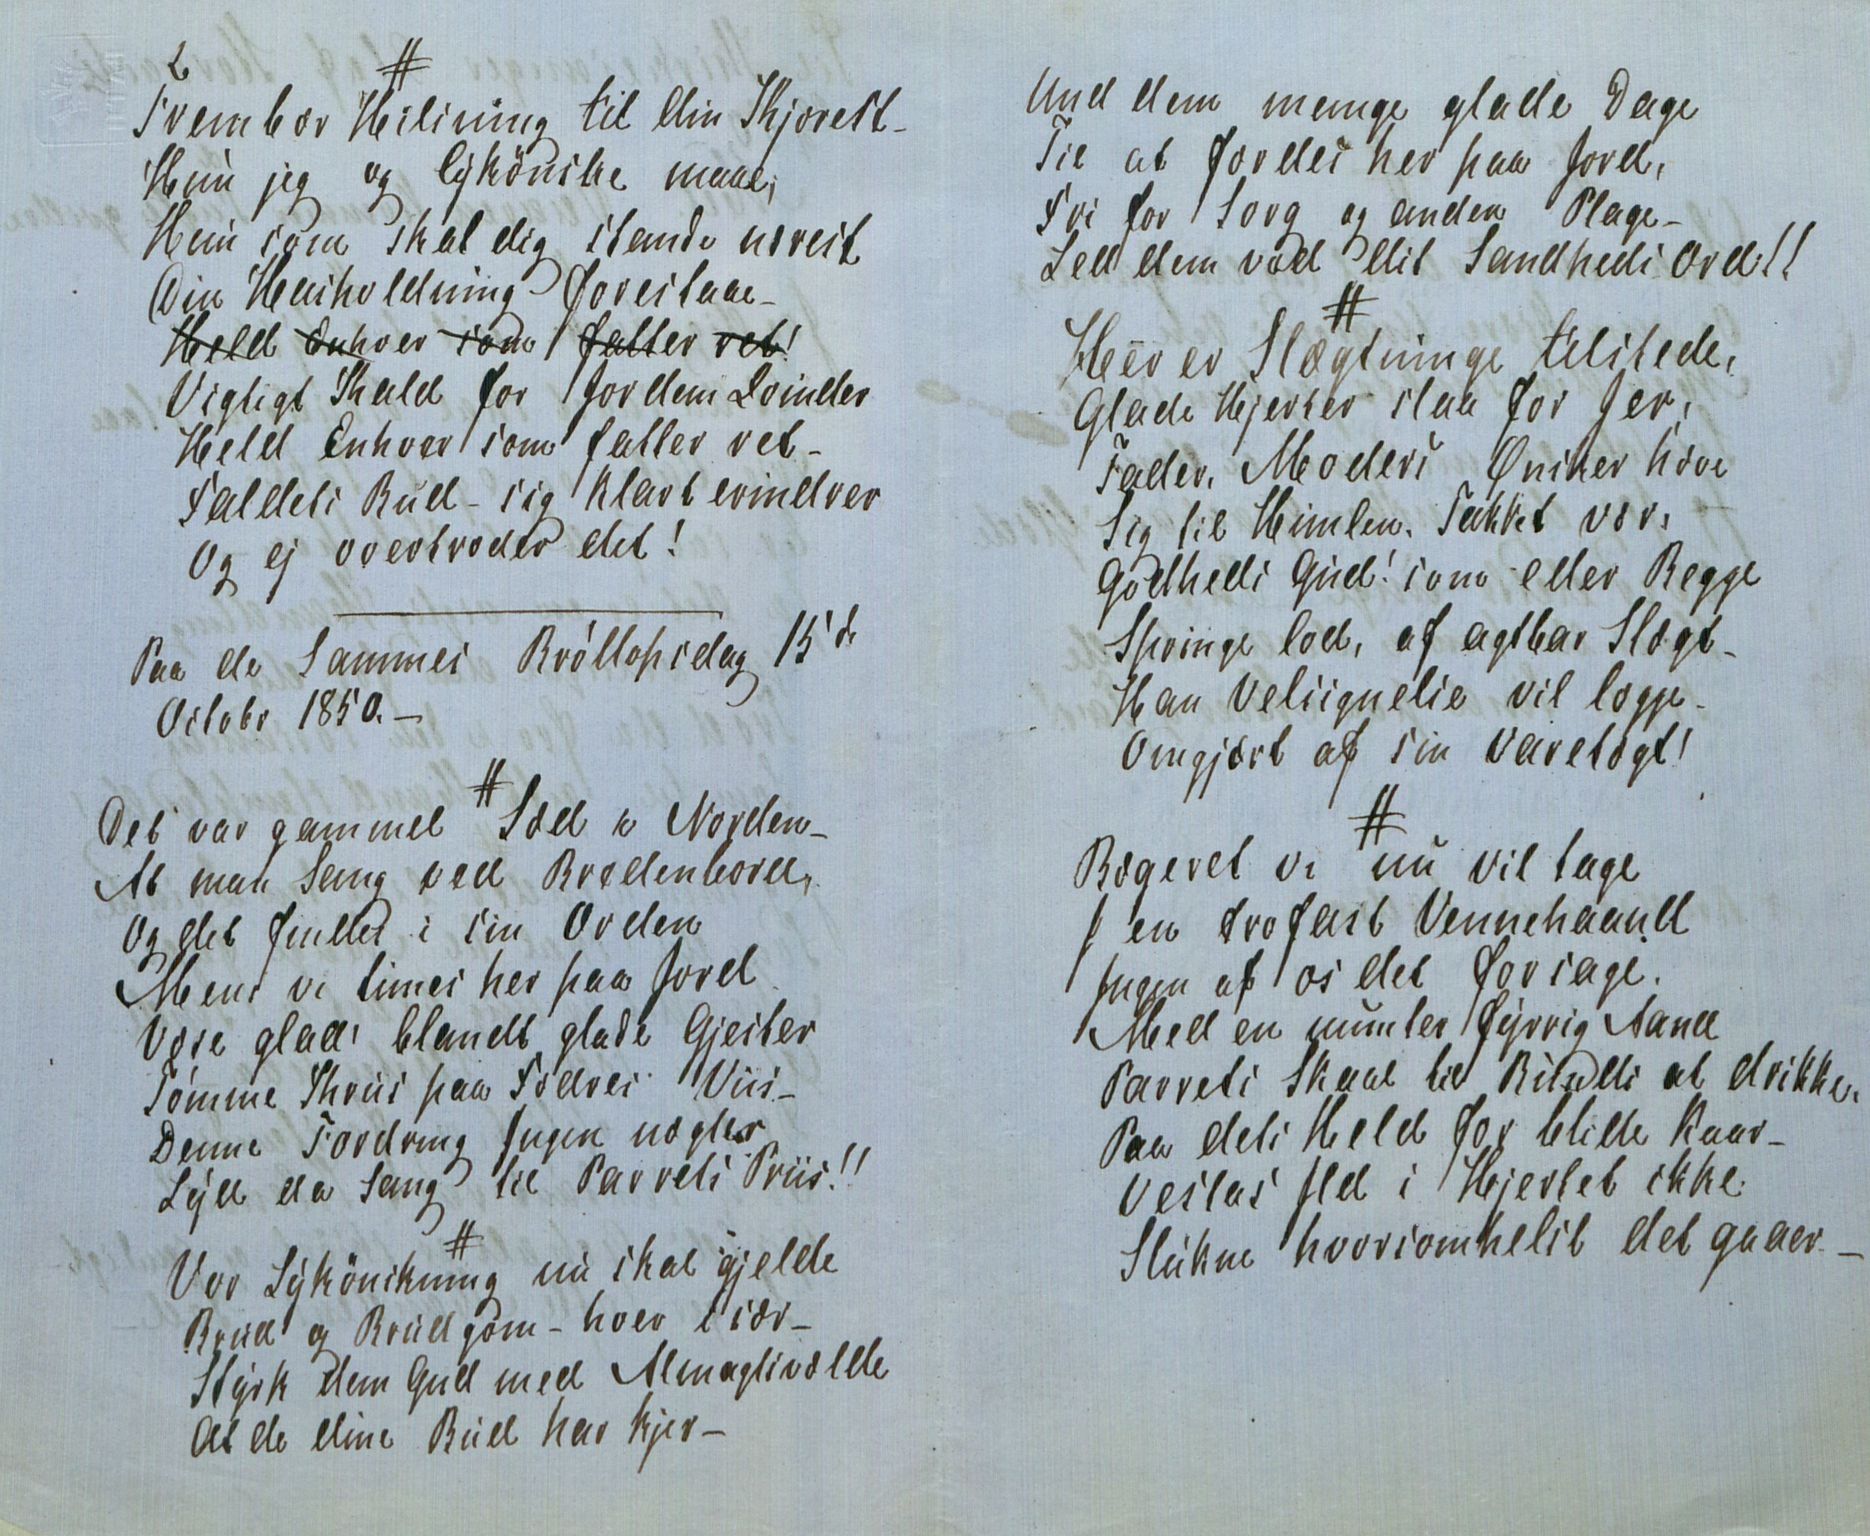 2
#
Frembær Hilsning til din Kjæreste_
Hun jeg og lykönske maae,
Hun som skal dig stande næreст
Din Huusholdning forestaae_
Held Enhver som fatter ret!
Vigtigt Kald for Jordens Qvinder
Held Enhver som fatter ret_
Kaldets Bud_ sig klart erindrer
Og ej overtræder det!
Paa de Sammes Bröllopsdag 15de
Octobr 1850._
#
Det var gammel Sæd i Norden_
At man sang ved Brudenbord,
Og det findes i sin Orden
Mens vi times her paa Jord
Være glad' blandt glade Gjester
Tömme Kruus paa Fædres Viis_
Denne Fordring Ingen nægter
Lyd da Sang til Parrets Priis!!
#
Vor Lykönskning nu skal gjelde
Brud og Brudgom_ hver især_
Styrk dem Gud med Almagtsvælde
At de dine Bud har kjer_
Und dem mange glade Dage
Til at færdes her paa Jord,
Fri for Sorg og anden Plage_
Led dem ved dit Sandheds Ord!!
#
Her er Slægtninge tilstede,
Glade Hjerter slaa for Jer,
Fader, Moders Ønsker hæve
Sig til Himlen. Takket vær,
Godheds Gud! som eder Begge
Springe lod, af agtbar Slægt_
Han Velsignelse vil lægge_
Omgjort af sin Varetægt!
#
Bægeret vi nu vil tage
I en trofast Vennehaand
Ingen af os det forsage.
Med en munter fyrrig Aand
Parrets Skaal til Bunds at drikke,
Paa dets Held for blide Kaar_
Vestas Ild i Hjertet ikke
Slukne hvorsomhelst det gaaer_